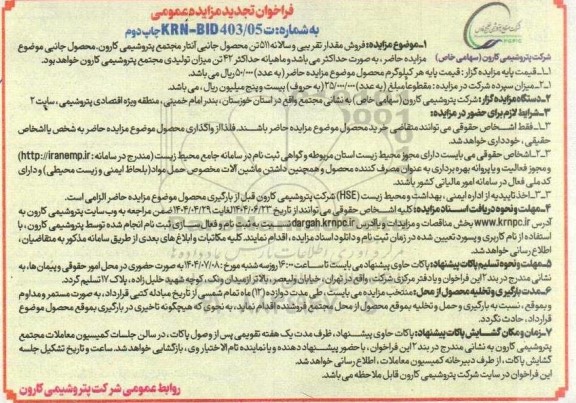 فراخوان تجدید مزایده عمومی
به شماره: ت KRN-BID 403/05 چاپ دوم
شرکت پتروشیمی کارون (سهامی خاص)
۱ـ موضوع مزایده: فروش مقدار تقریبی و سالانه ۵۱۱ تن محصول جانبی آنتار مجتمع پتروشیمی کارون. محصول جانبی موضوع
مزایده حاضر، به صورت حداکثر می باشد و ماهیانه حداکثر ۴۲ تن میزان تولیدی مجتمع پتروشیمی کارون خواهد بود.
۱ـ۱ـ قیمت پایه مزایده گزار: قیمت پایه هر کیلوگرم محصول موضوع مزایده حاضر (به عدد) ۵۰/۰۰۰ ریال می باشد.
۱ـ۲ـ میزان سپرده شرکت در مزایده: مقطوعا مبلغ (به عدد) ۲۵/۰۰۰/۰۰۰ (به حروف) بیست و پنج میلیون ریال، می باشد.
۲ـ دستگاه مزایده گزار: شرکت پتروشیمی کارون (سهامی خاص) به نشانی مجتمع واقع در استان خوزستان، بندر امام خمینی، منطقه ویژه اقتصادی پتروشیمی، سایت ۲
۳ـ شرایط لازم برای حضور در مزایده:
۳ـ۱ـ فقط اشخاص حقوقی می توانند متقاضی خرید محصول موضوع مزایده حاضر باشند. فلذا از واگذاری محصول موضوع مزایده حاضر به شخص یا اشخاص
حقیقی، خودداری خواهد شد.
۳ـ۲ـ اشخاص حقوقی می بایست دارای مجوز محیط زیست استان مربوطه و گواهی ثبت نام در سامانه جامع محیط زیست (مندرج در سامانه: http://iranemp.ir)
و مجوز فعالیت و یا پروانه بهره برداری به عنوان مصرف کننده محصول و همچنین داشتن ماشین آلات مخصوص حمل مواد (بلحاظ ایمنی و زیست محیطی) و دارای
کد ملی فعال در سامانه امور مالیاتی کشور باشند.
۳ـ۳ـ اخذ تاییدیه از اداره ایمنی، بهداشت و محیط زیست (HSE) شرکت پتروشیمی کارون قبل از بارگیری محصول موضوع مزایده حاضر الزامی است.
۴ـ مهلت و نحوه دریافت اسناد مزایده: کلیه اشخاص حقوقی می توانند از تاریخ ۱۴۰۴/۰۶/۲۳ لغایت ۱۴۰۴/۰۴/۲۹ ضمن مراجعه به وب سایت پتروشیمی کارون به
آدرس www.krnpc.ir بخش مناقصات و مزایدات و یا آدرس dargah.krnpc.ir نسبت به ثبت نام و فعال سازی ثبت نام انجام شده توسط پتروشیمی کارون، با
استفاده از نام کاربری و پسورد تعیین شده در زمان ثبت نام و دانلود اسناد مزایده، اقدام نمایند. کلیه مکاتبات و ابلاغ های بعدی از طریق سامانه مذکور به متقاضیان،
اطلاع رسانی خواهد شد.
۵ـ مهلت و نحوه تسلیم پاکات پیشنهاد: پاکات حاوی پیشنهاد می بایست تا ساعت ۱۴:۰۰ روز سه شنبه مورخ ۱۴۰۴/۰۷/۰۸ به صورت حضوری در محل امور حقوقی و پیمان ها، به
نشانی مندرج در بند ۲ این فراخوان و یا دفتر مرکزی شرکت واقع در تهران، خیابان ولیعصر، بالاتر از میدان ونک، کوچه شهید خلیل زاده، پلاک ۱۷ تسلیم گردد.
۶ـ مدت بارگیری و تخلیه محصول از محل: منتخب مزایده می بایست، طی مدت دوازده (۱۲) ماه تمام شمسی از تاریخ مبادله کتبی قرارداد، به صورت مستمر و مداوم
و بموقع، نسبت به بارگیری و حمل و تخلیه بموقع محصول از محل مجتمع فروشنده اقدام نماید، به نحوی که هیچگونه تاخیری در بارگیری بموقع محصول موضوع
قرارداد، حادث نگردد.
۷ـ زمان و مکان گشایش پاکات پیشنهاد: پاکات حاوی پیشنهاد، ظرف مدت یک هفته تقویمی پس از وصول پاکات، در سالن جلسات کمیسیون معاملات مجتمع
پتروشیمی کارون به نشانی مندرج در بند ۲ این فراخوان، با حضور پیشنهاد دهنده و یا نماینده تام الاختیار وی، بازگشایی خواهد شد. ساعت و تاریخ تشکیل جلسه
گشایش پاکات، از طرف دبیرخانه کمیسیون معاملات، اطلاع رسانی خواهد شد.
این فراخوان در سایت شرکت پتروشیمی کارون قابل ملاحظه می باشد.
روابط عمومی شرکت پتروشیمی کارون